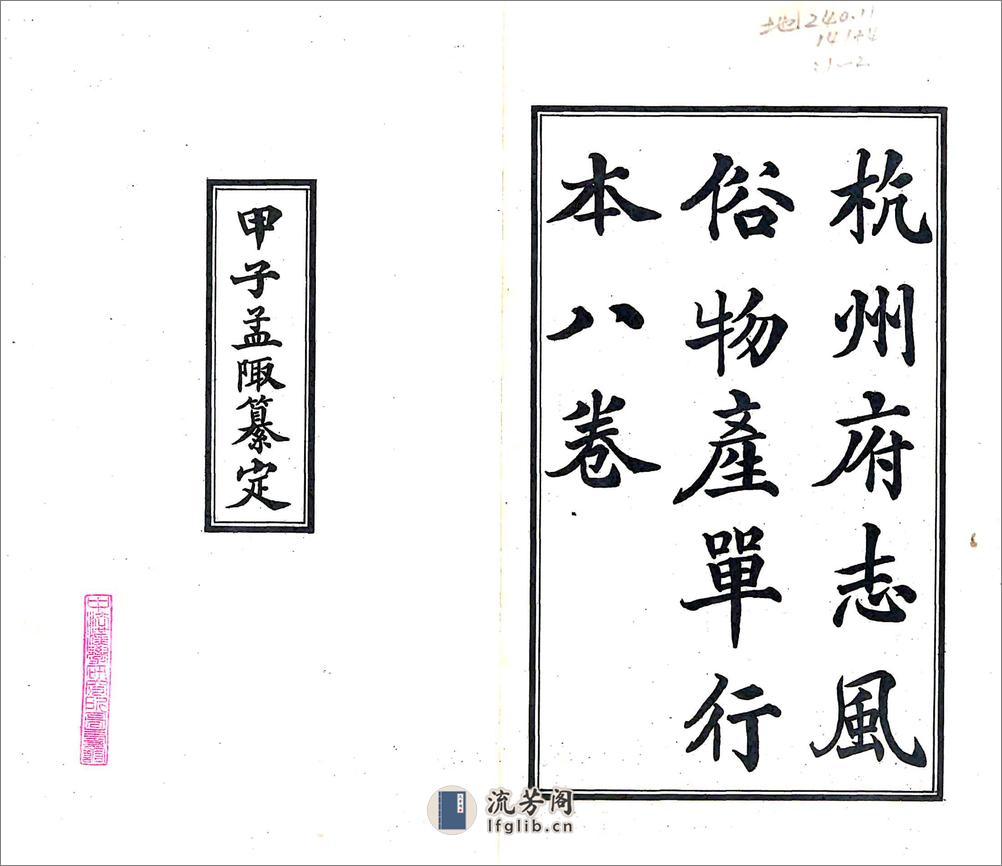 地240.11
杭州府志風
俗物產單行
本八卷
甲子孟陬纂定
流芳阁
lfglib.cn